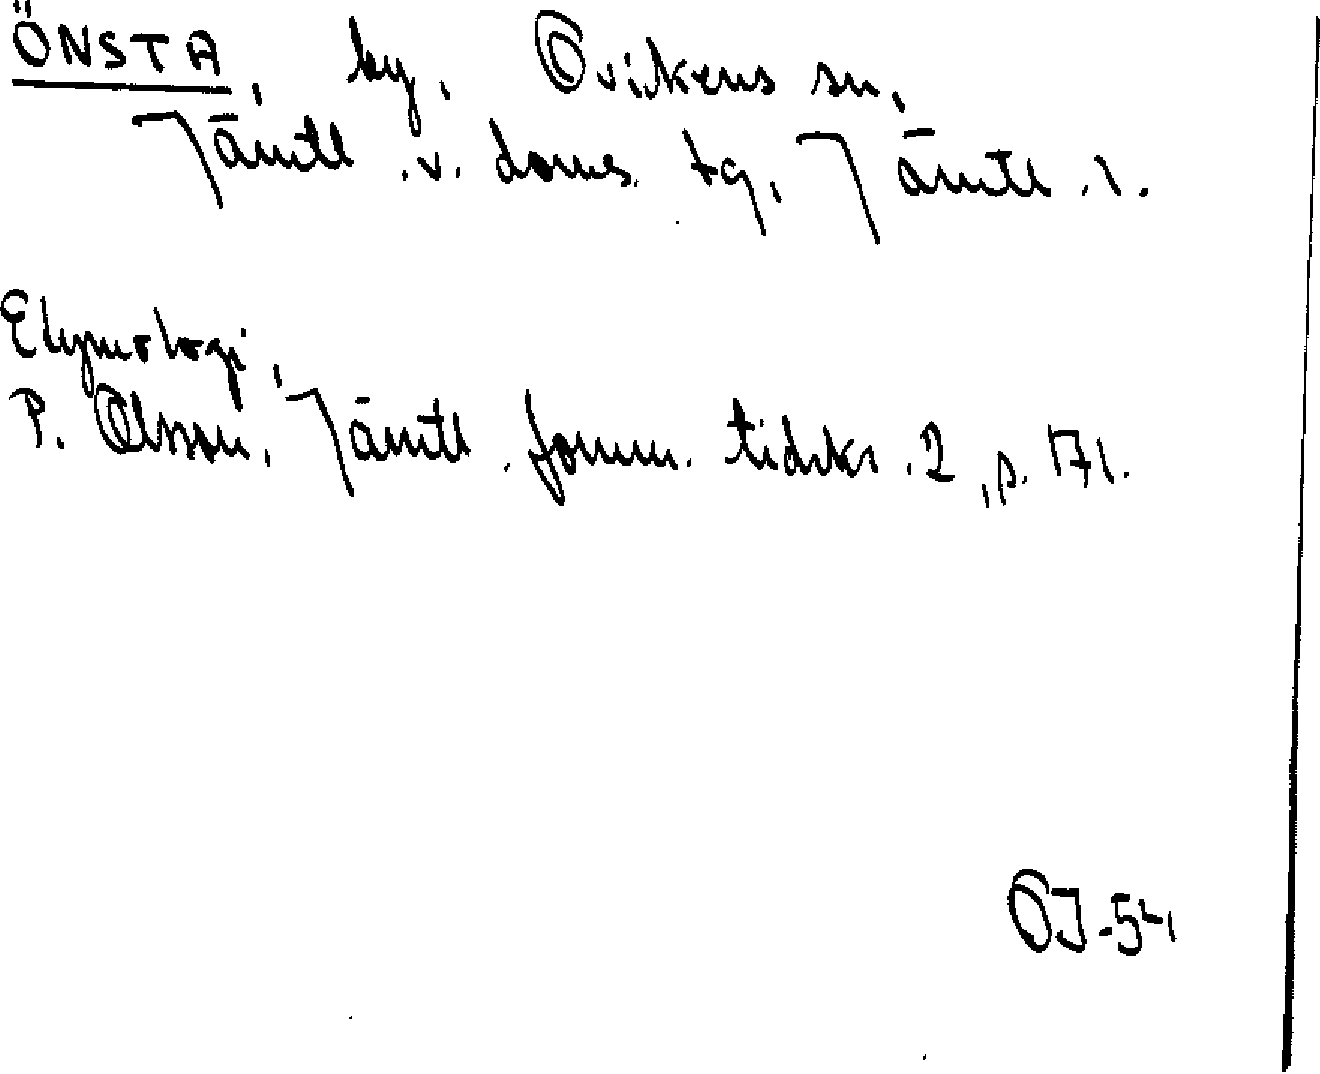 ÖNSTA, by, Ovikens sn,
Jämtl. v. doms. tg, Jämtl. l.
Etymologi,
P. Olsson, Jämtl. fornm. tidskr. 2, s. 171.
OJ-54